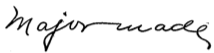 Major made